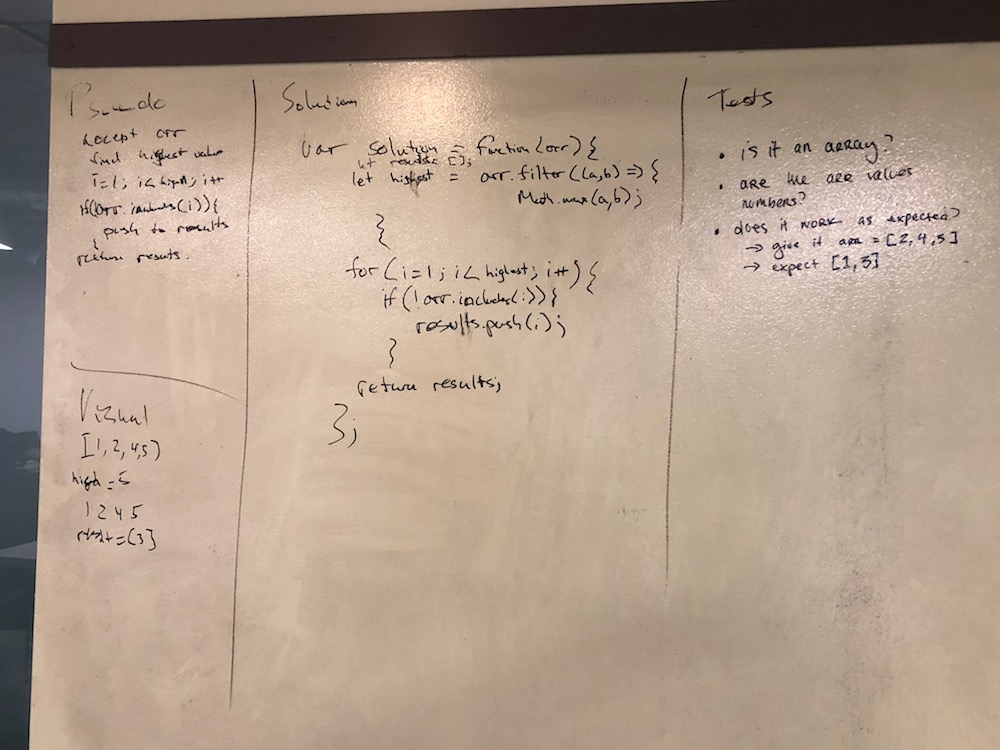 Pseudo
accept arr
find highest value
i=1; i<high; i++
if(!arr.includes(i)){
push to results
}
return results.
Visual
[1,2,4,5]
high = 5
1 2 4 5
result = [3]
Solution
var solution = function(arr){
let results = [];
let highest = arr.filter((a,b) => {
Math.max(a,b);
}
for(i=1; i< highest; i++){
if(!arr.includes(i)){
results.push(i);
}
return results;
};
Tests
• is it an array?
• are the arr values
numbers?
• does it work as expected?
→ give it arr = [2,4,5]
→ expect [1,3]